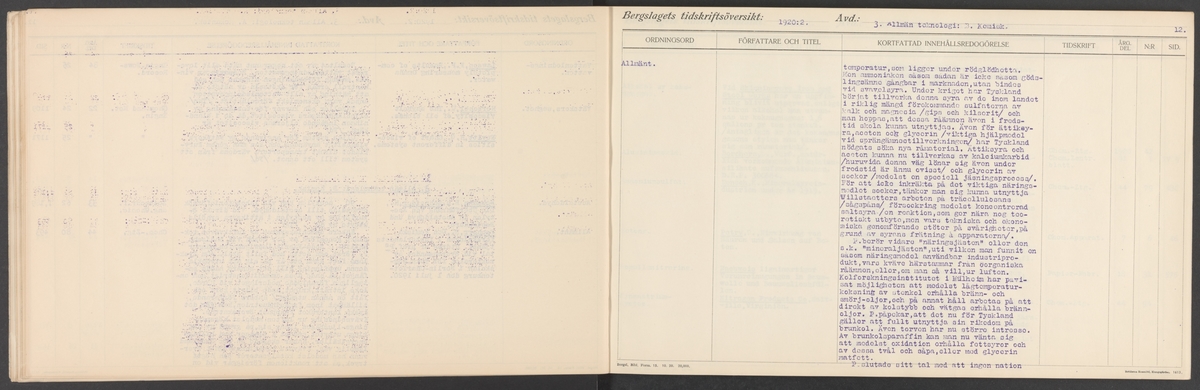 Bergslagets tidskriftsöversikt: 1920:2. Avd.: j. Allmän teknologi: D. Kemisk. 12.
ORDNINGSORD FÖRFATTARE OCH TITEL KORTFATTAD INNEHÅLLSREDOGÖRELSE TIDSKRIFT ÅRG. DEL N:R SID.
Allmänt.
temperatur,som ligger under rödglödhetta.
Men ammoniaken såsom sådan är icke såsom göds-
lingsämne gångbar i marknaden,utan bindes
vid svavelsyra. Under kriget har Tyskland
börjat tillverka denna syra av de inom landet
i riklig mängd förekommande sulfaterna av
kalk och magnesia /gips och kiserit/ och
man hoppas,att dessa råämnen även i freds-
tid skola kunna utnyttjas. Även för ättiksy-
ra,aceton och glycerin /viktiga hjälpmedel
vid sprängämnestillverkningen/ har Tyskland
nödgats söka nya råmaterial. Ättiksyra och
aceton kunna nu tillverkas av kalciumkarbid
/huruvida denna väg lönar sig även under
fredstid är ännu ovisst/ och glycerin av
socker /medelst en speciell jäsningsprocess/.
För att icke inkräkta på det viktiga närings-
medlet socker,tänker man sig kunna utnyttja
Willstaetters arbeten på träcellulosans
/sågspåns/ försockring medelst koncentrerad
saltsyra /en reaktion,som ger nära nog teo-
retiskt utbyte,men vars tekniska och ekono-
miska genomförande stöter på svårigheter,på
grund av syrans frätning å apparaterna/.
F.berör vidare "näringsjästen" eller den
s.k. "mineraljästen",uti vilken man funnit en
såsom näringsmedel användbar industripro-
dukt,vars kväve härstammar från oorganiska
råämnen,eller,om man så vill,ur luften.
Kolforskningsinstitutet i Mülheim har påvi-
sat möjligheten att medelst lågtemperatur-
kokening av stenkol erhålla bränn- och
smörj-oljor,och på annat håll arbetas på att
direkt av kolstybb och vätgas erhålla bränn-
oljor. F.påpekar,att det nu för Tyskland
gäller att fullt utnyttja sin rikedom på
brunkol. Även torven har nu större intresse.
Av brunkolsparaffin kan man nu vänta sig
att medelst oxidation erhålla fettsyror och
av dessa tvål och såpa,eller med glycerin
matfett.
F.slutade sitt tal med att ingen nation